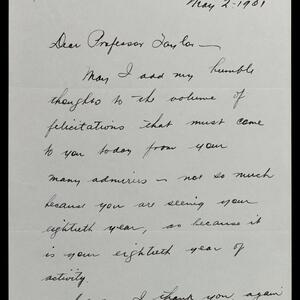 May 2 - 1961
Dear Professor Taylor —
May I add my humble
thoughts to the volume of
felicitations that must come
to you today from your
many admirers — not so much
because you are seeing your
eightieth year, as because it
is your eightieth year of
activity.
I thank you again